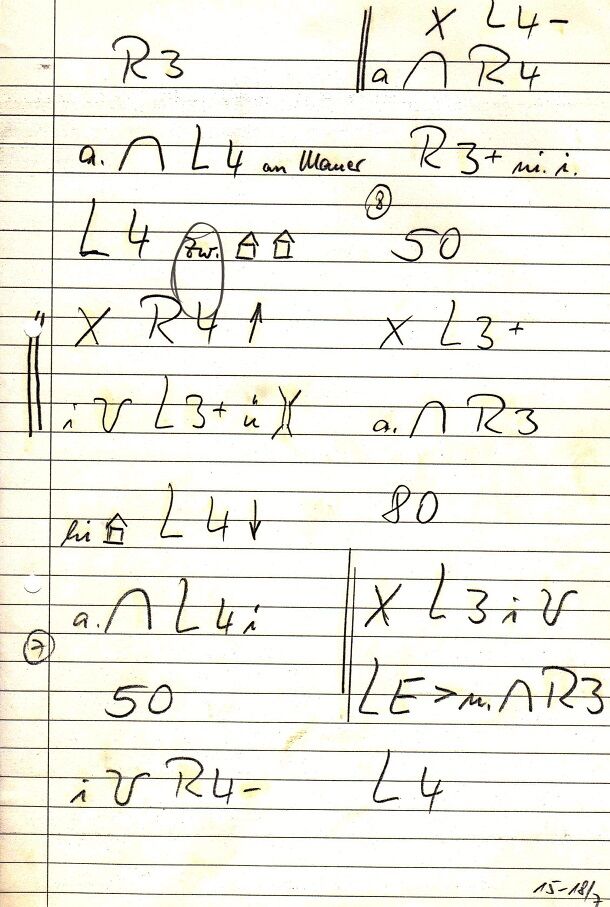 R3
a. ∩ L4 an Mauer
L4 zw.
X R4 ↑
i V L3+ ü )(
hi L4 ↓
a. ∩ L4 i
7
50
i V R4-
X L4-
a ∩ R4
R3+ m. i.
8
50
X L3+
a. ∩ R3
80
X L3 i V
LE > n. ∩ R3
L4
15-18/7